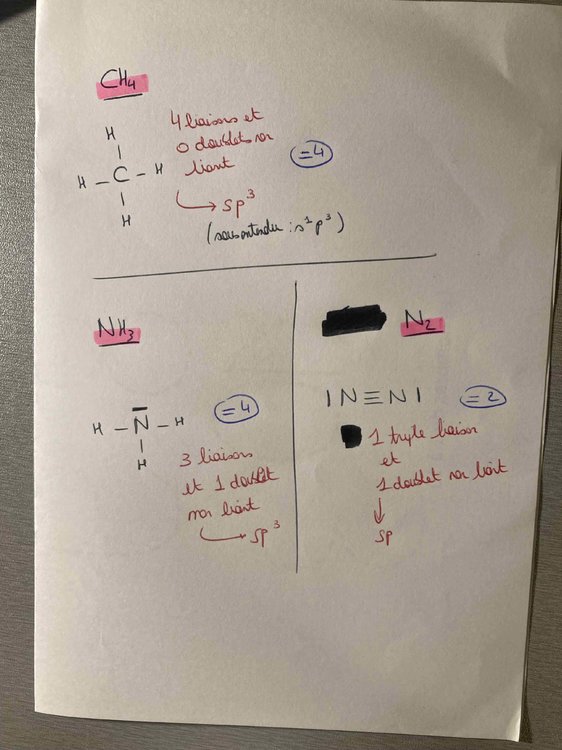 CH4
H
H – C – H
H
4 liaisons et
0 doublets non
liant
= 4
→ sp³
(sous entendu : s¹p³)
NH3
H – N – H
H
= 4
3 liaisons
et 1 doublet
non liant
→ sp³
N2
|N≡N|
= 2
1 triple liaison
et
1 doublet non liant
↓
sp